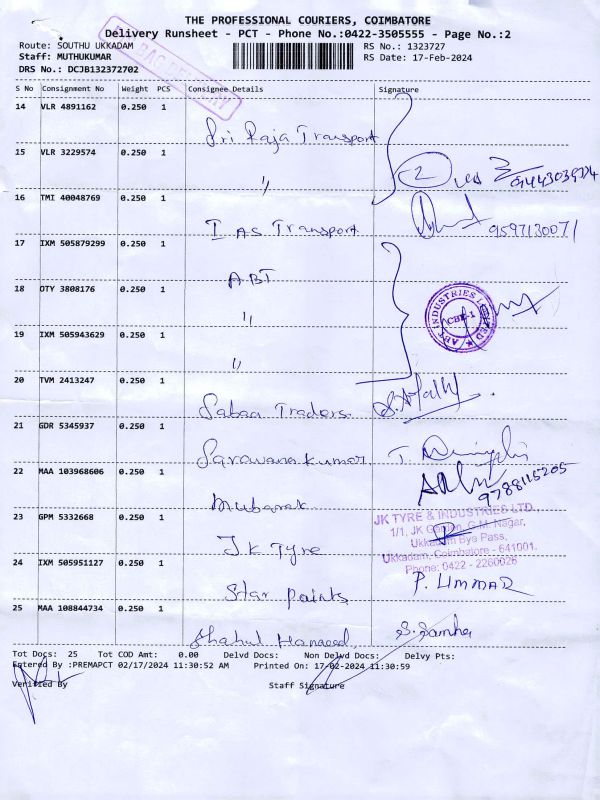 THE PROFESSIONAL COURIERS, COIMBATORE
Delivery Runsheet - PCT - Phone No.:0422-3505555 - Page No.:2
Route: SOUTHU UKKADAM
RS No.: 1323727
Staff: MUTHUKUMAR
RS Date: 17-Feb-2024
DRS No.: DCJB132372702
S No Consignment No Weight PCS Consignee Details Signature
14 VLR 4891162 0.250 1
Sri Raja Transport
15 VLR 3229574 0.250 1
〃
2
16 TMI 40048769 0.250 1
I AS Transport 9597130071
17 IXM 505879299 0.250 1
ABT
18 OTY 3808176 0.250 1
〃
ABT INDUSTRIES LIMITED
CBE-1
19 IXM 505943629 0.250 1
〃
20 TVM 2413247 0.250 1
Sabaa Traders
21 GDR 5345937 0.250 1
Saravana Kumar
22 MAA 103968606 0.250 1
Mubarak 9788115205
23 GPM 5332668 0.250 1
JK TYRE & INDUSTRIES LTD.
1/1, JK Garden, G.M. Nagar,
Ukkadam Bye Pass,
Ukkadam, Coimbatore - 641001.
Phone: 0422 - 2260026
JK Tyre
24 IXM 505951127 0.250 1
Star paints P. UMMAR
25 MAA 108844734 0.250 1
Shahul Hameed
Tot Docs: 25 Tot COD Amt: 0.00 Delvd Docs: Non Delvd Docs: Delvy Pts:
Entered By :PREMAPCT 02/17/2024 11:30:52 AM Printed On: 17-02-2024 11:30:59
Verified By Staff Signature